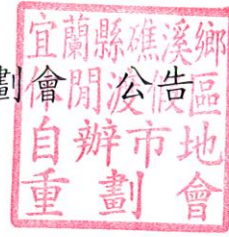 宜蘭縣礁溪鄉
休閒渡假區
自辦市地
重劃會
劃會 公告